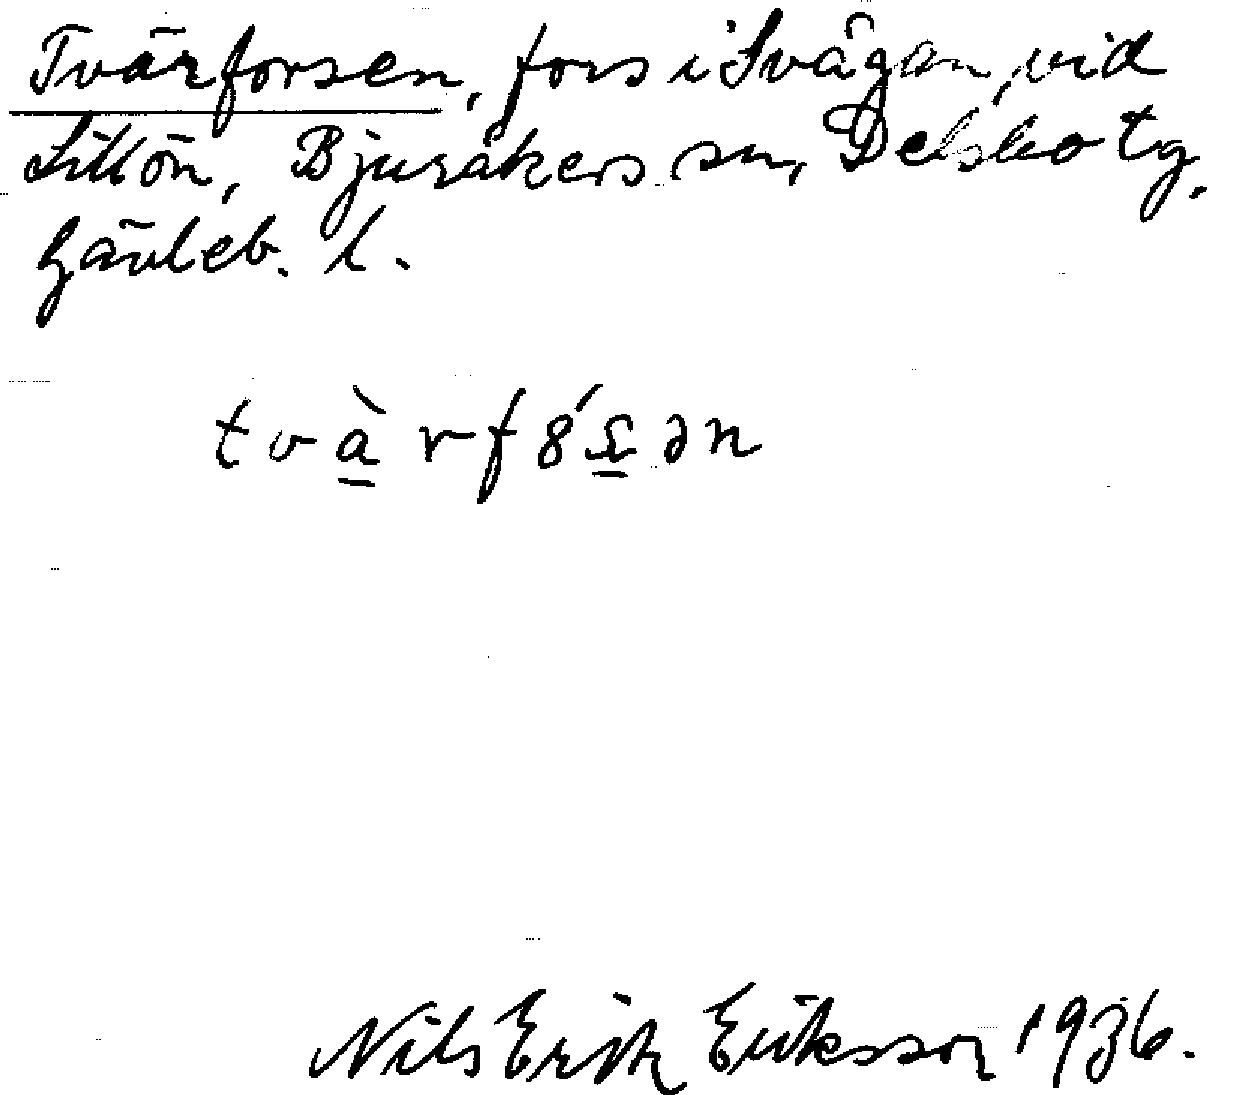 Tvärforsen, fors i Svågan, vid
Lillön, Bjuråkers sn, Delsbo tg.
Gävleb. l.
tvàrfȣ́ꭥən
Nils Erik Eriksson 1936.